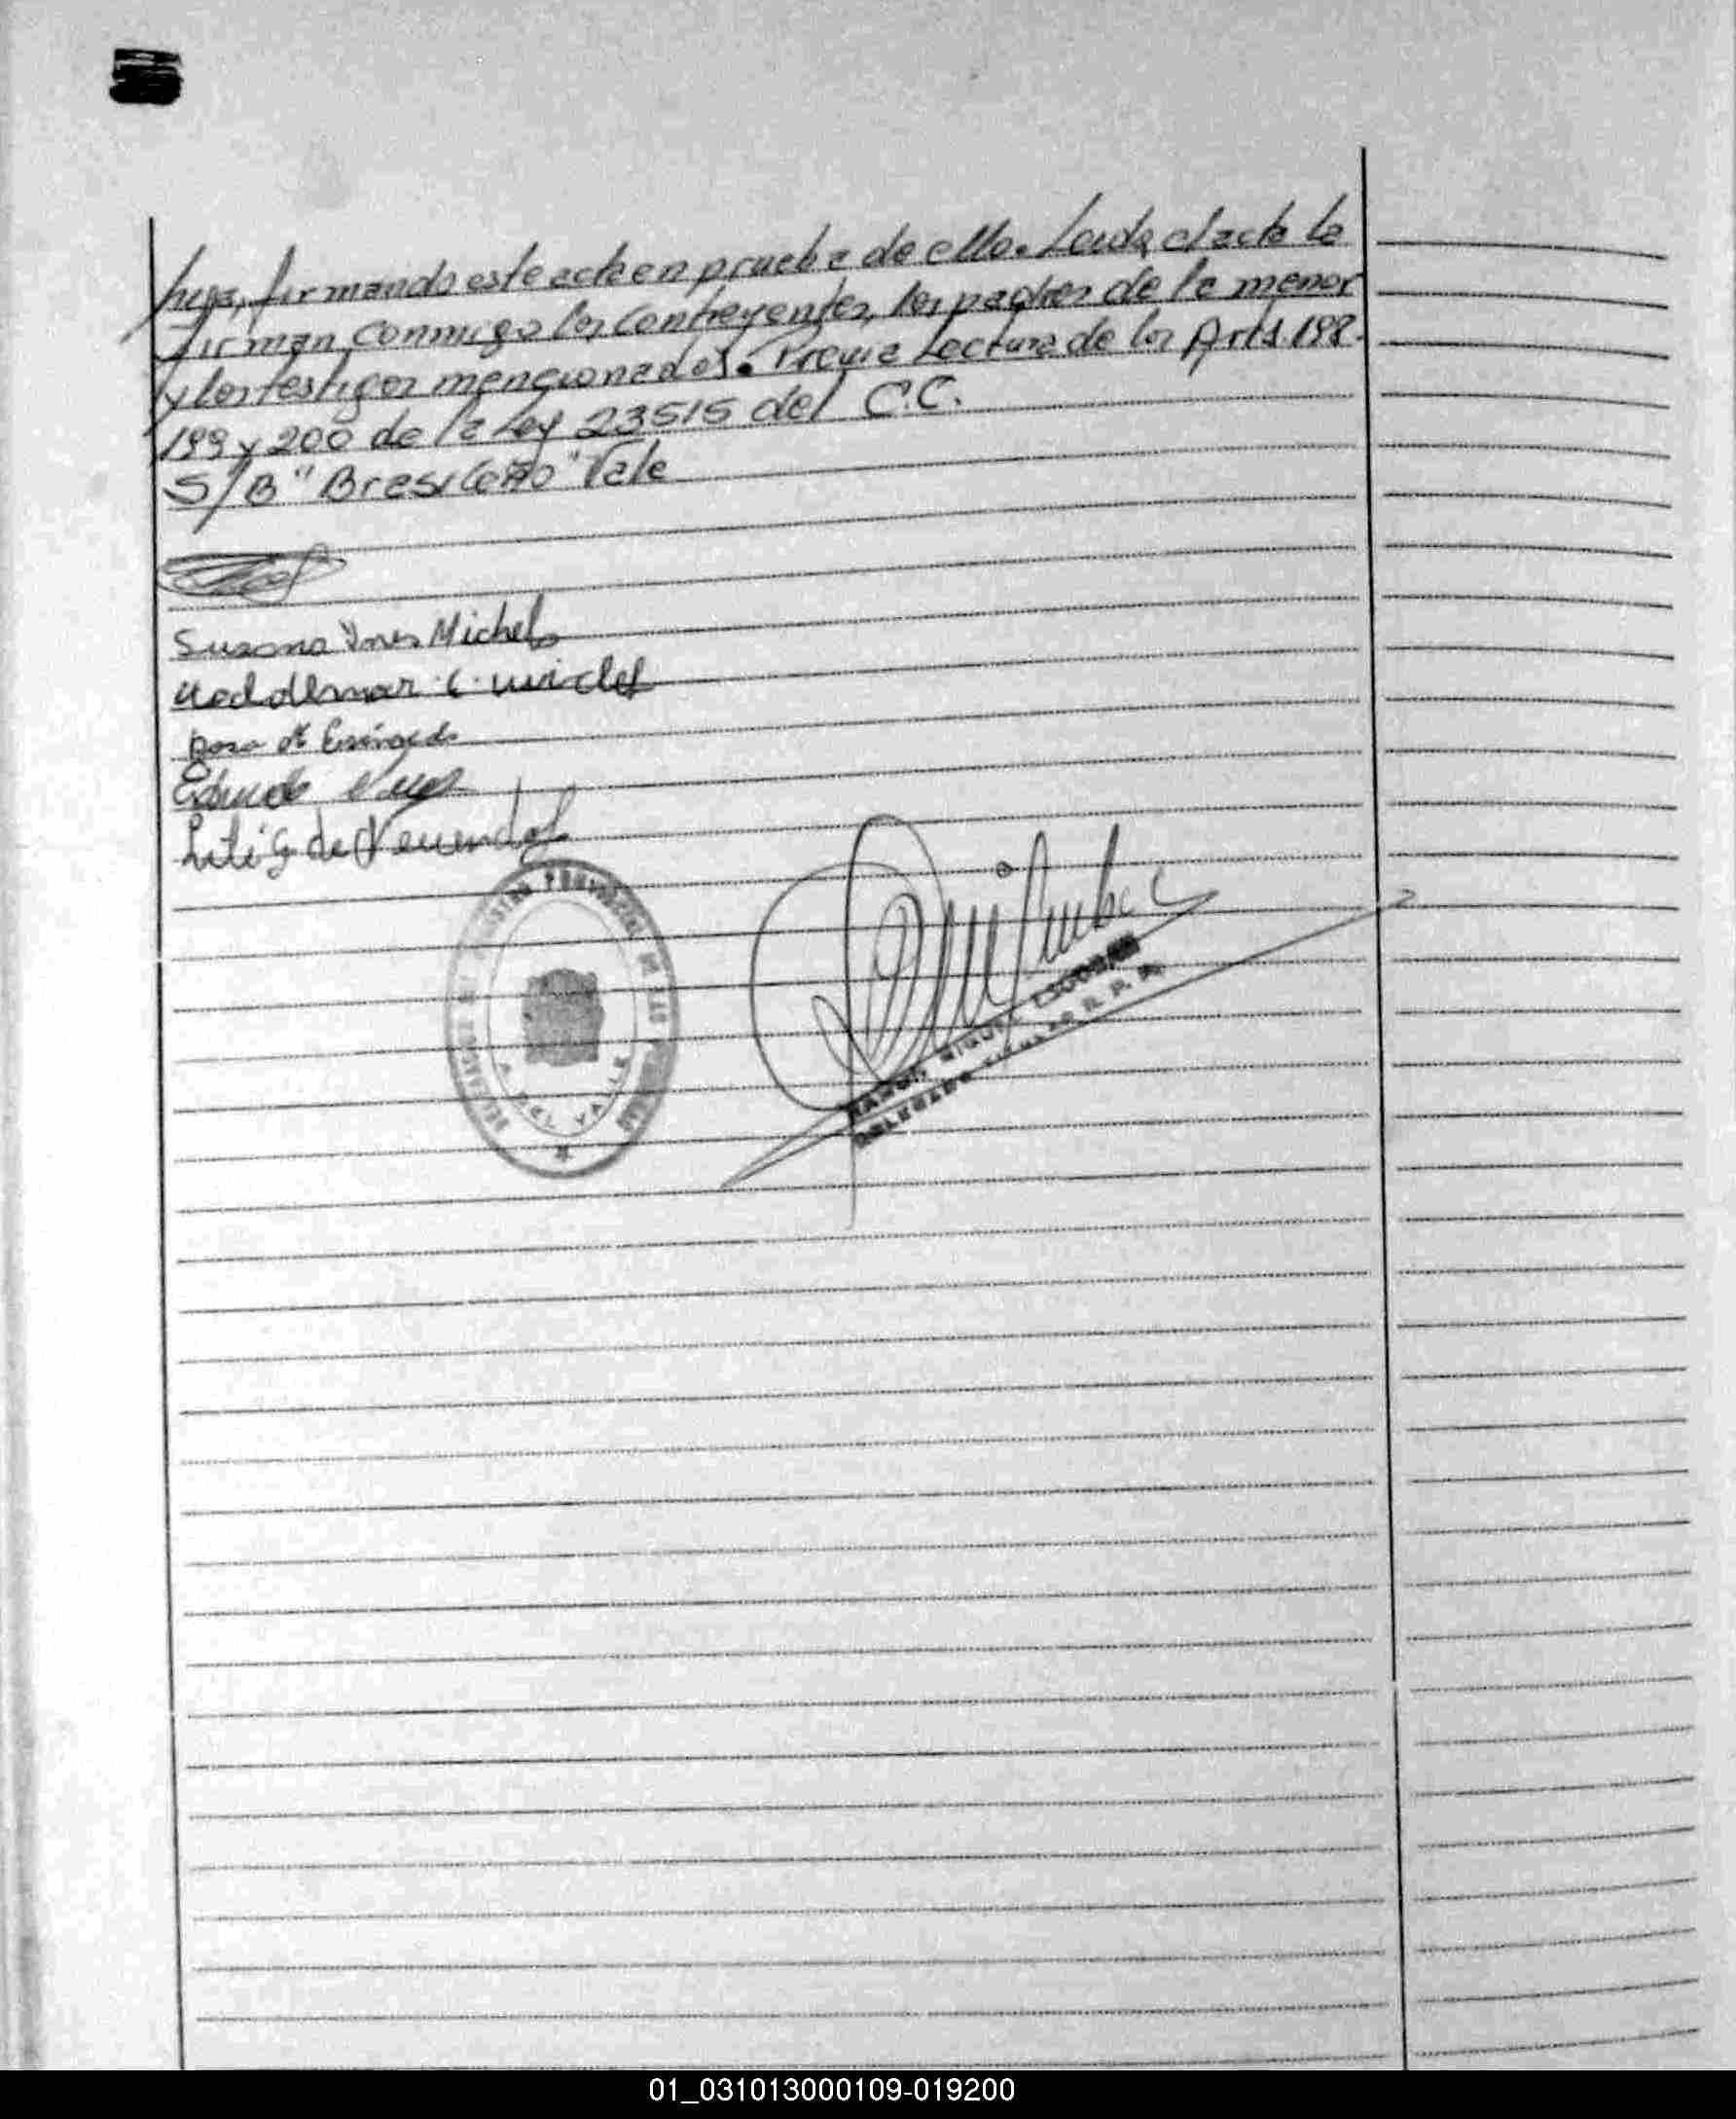 hija, firmando este acta en prueba de ello. Leida el acta la
firman conmigo los contrayentes, los padres de la menor
y los testigos mencionados. Previa Lectura de los Arts. 198-
199 y 200 de la Ley 23515 del C.C.
S/B "Brasileño" Vale
Susana Ines Michel
Waldemar C.
Rosa
Eduardo
de
REGISTRO PROVINCIAL DE LAS PERSONAS
MIGUEL
DELEGADO R. P. P.
01_031013000109-019200